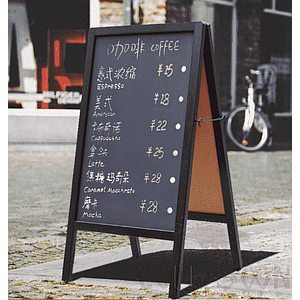 咖啡 COFFEE
意式浓缩 ¥25
ESPRESSO
美式 ¥18
American
卡布奇诺 ¥22
Cappuccino
拿铁 ¥25
Latte
焦糖玛奇朵 ¥28
Caramel Macchiato
摩卡 ¥28
Mocha